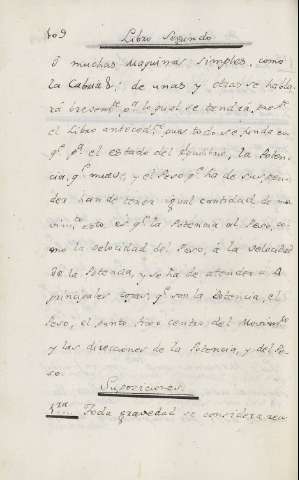 109
Libro Segundo
ó muchas Maquinas simples, como
la Cabria &: de unas y otras se habla
rá brevem.te p.a lo qual se tendrá
el Libro anteced.te pues todo se funda en
q.e p.a el estado del Equilibrio, la Poten
cia, q.e mueve, y el Peso q.e ha de suspen
der han de tener igual cantidad de mo
vim.to esto es q.e la Potencia al Peso, co
mo la velocidad del Peso, á la velocidad
de la Potencia, y se ha de atender á 4
principales cosas, q.e son la Potencia, el
Peso, el punto fixo centro del Movim.to
y las direcciones de la Potencia, y del Pe
so.
Suposiciones.
1.ra Toda gravedad se considera reu